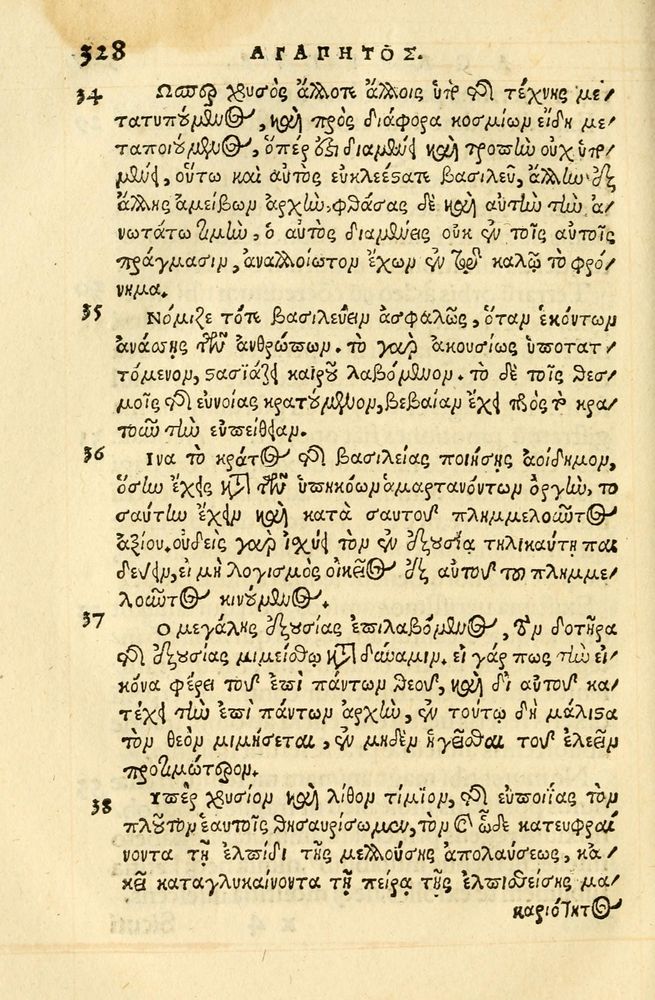 328 ΑΓΑΠΗΤΟΣ.
34 Ωσπερ χρυσὸς ἄλλοτε ἄλλοις ὑπὸ τῆς τέχνης με/
τατυπούμενος, καὶ πρὸς διάφορα κοσμίων εἴδη με/
ταποιούμενος, ὅπέρ ἐστι διαμένει καὶ τροπὴν ουχ ὑπο/
μένει, οὕτω καὶ αὐτὸς ευκλεέστατε βασιλεῦ, ἄλλην ἐξ
ἄλλης ἀμείβων ἀρχὴν, φθάσας δὲ καὶ αὐτὴν τὴν ἀ/
νωτάτω τιμὴν, ὁ αὐτὸς διαμένεις οὐκ ἐν τοῖς αὐτοῖς
πράγμασιν, ἀναλλοίωτον ἔχων ἐν τῷ καλῷ τὸ φρό/
νημα.
35 Νόμιζε τότε βασιλεύειν ἀσφαλῶς, ὅταν ἑκόντων
ἀνάσσῃς τῶν ἀνθρώπων. τὸ γὰρ ἀκουσίως ὑποτατ/
τόμενον, στασιάζει καιροῦ λαβόμενον. τὸ δὲ τοῖς θεσ/
μοῖς τῆς εὐνοίας κρατούμενον, βεβαίαν ἔχει πρὸς τὸ κρα/
τοῦν τὴν εὐπείθειαν.
36 Ινα τὸ κράτος τῆς βασιλείας ποιήσῃς ἀοίδημον,
ὅσην ἔχεις κατὰ τῶν ὑπηκόων ἁμαρτανόντων ὀργὴν, το
σαύτην ἔχειν καὶ κατὰ σαυτοῦ πλημμελοῦντος
ἀξίου. οὐδεὶς γὰρ ἰσχύει τὸν ἐν ἐξουσίᾳ τηλικαύτῃ παι
δεύειν, εἰ μὴ λογισμὸς οἰκεῖος ἐξ αὐτοῦ τοῦ πλημμε/
λοῦντος κινούμενος.
37 Ο μεγάλης ἐξουσίας ἐπιλαβόμενος, τὸν δοτῆρα
τῆς ἐξουσίας μιμείσθω κατὰ δύναμιν. εἰ γάρ πως τὴν εἰ/
κόνα φέρει τοῦ ἐπὶ πάντων θεοῦ, καὶ δι αὐτοῦ κα/
τέχει τὴν ἐπὶ πάντων ἀρχὴν, ἐν τούτῳ δὴ μάλιστα
τὸν θεὸν μιμήσεται, ἐν μηδὲν ἡγεῖσθαι τοῦ ἐλεεῖν
προτιμώτερον.
38 Υπὲρ χρυσίον καὶ λίθον τίμιον, τῆς εὐποιίας τὸν
πλοῦτον ἑαυτοῖς θησαυρίσωμεν, τὸν καὶ ὧδε κατευφραί
νοντα τῇ ἐλπίδι τῆς μελλούσης ἀπολαύσεως, κἀ/
κεῖ καταγλυκαίνοντα τῇ πείρᾳ τῆς ἐλπισθείσης μα/
καριότητος